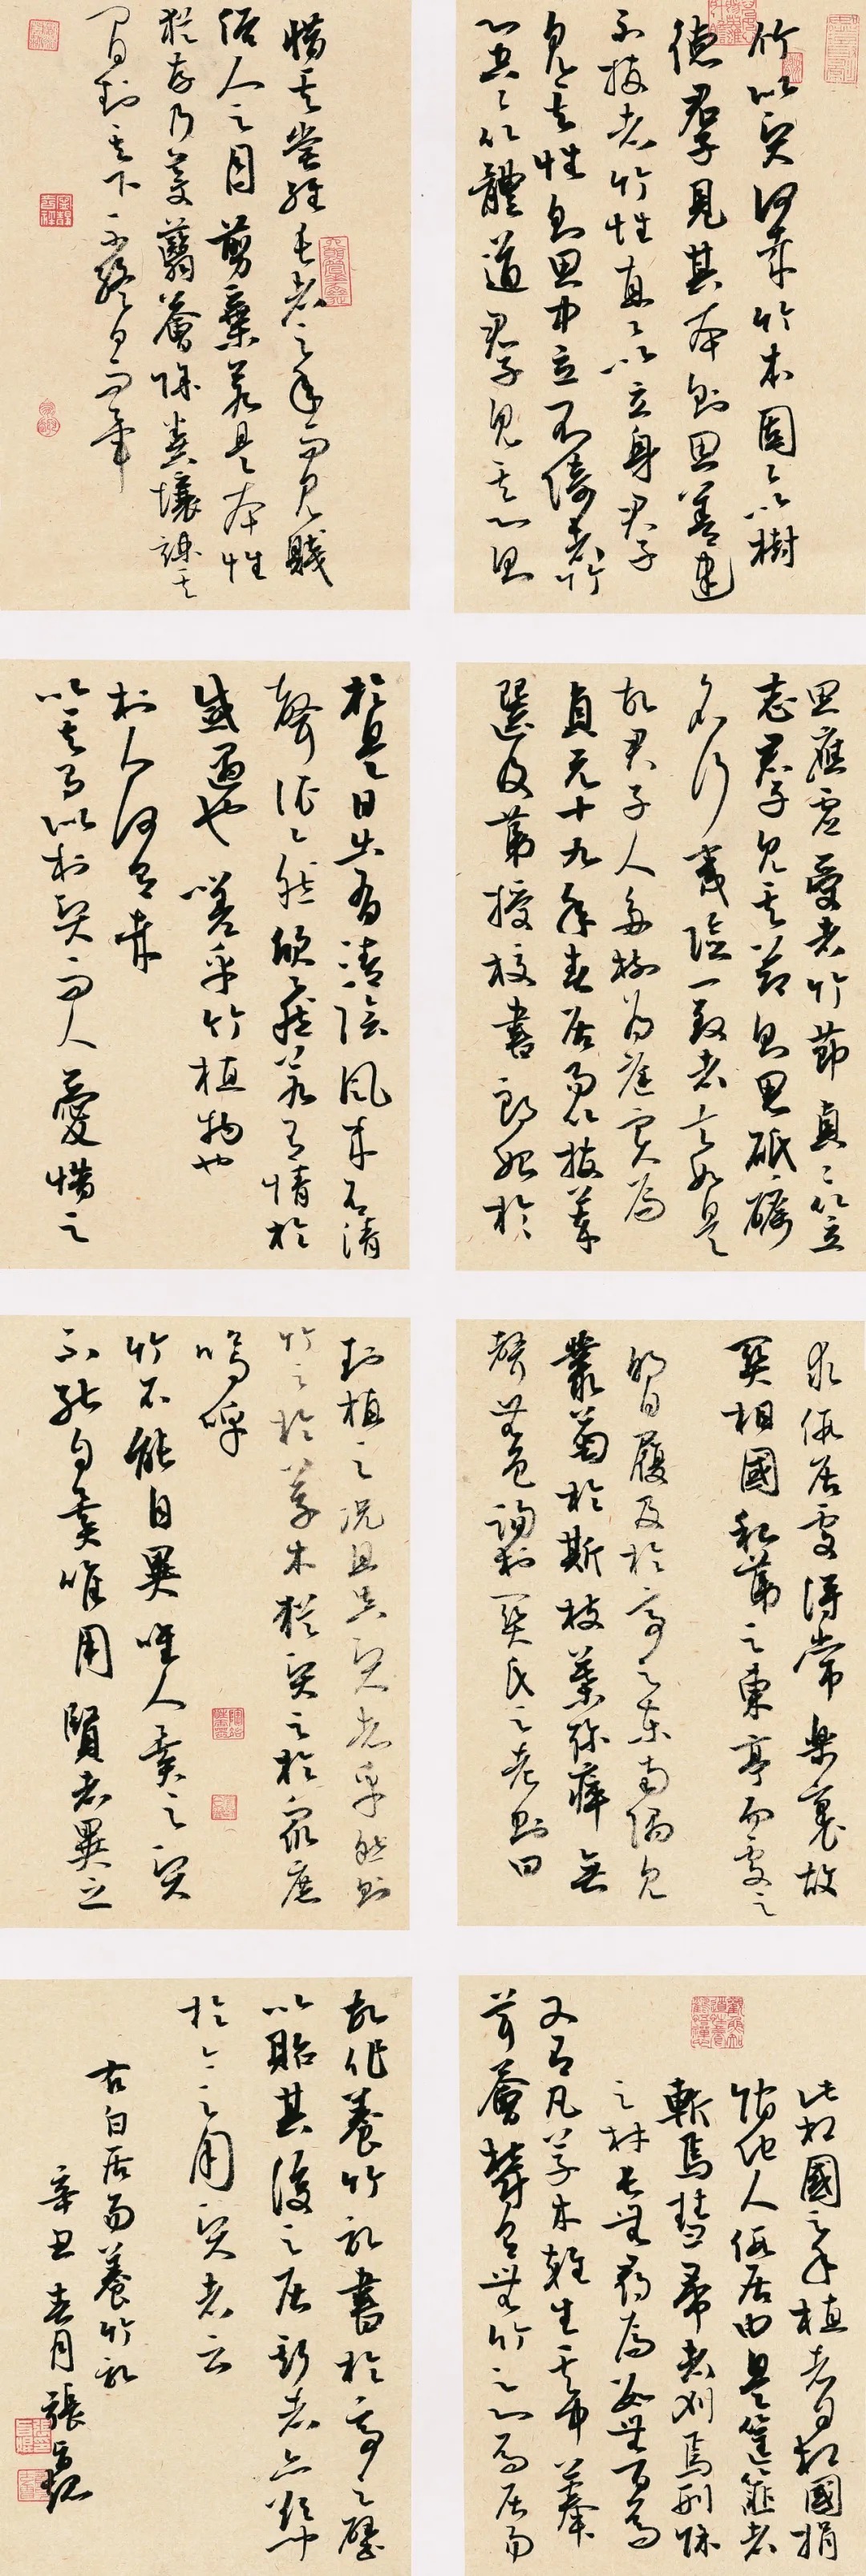 竹似賢何哉竹本固固以樹
德君子見其本則思善建
不拔者竹性直直以立身君子
見其性則思中立不倚者竹
心空空以體道君子見其心則
思應虛受者竹節貞貞以立
志君子見其節則思砥礪
名行夷險一致者夫如是
故君子人多樹為庭實焉
貞元十九年春居易以拔萃
選及第授校書郎始於
求假居處得常樂里故
關相國私第之東亭而處之
明日履及於亭之東南隅見
叢於斯枝葉殄瘁無
聲無色詢於關氏之老則曰
此相國之手植者自相國捐
館他人假居由是筐篚者
斬焉彗帚者刈焉刑餘
之材長無尋焉數無百焉
又有凡草木雜生其中菶
茸薈鬱有無竹之心焉居易
惜其嘗經長者之手而見賤
俗人之目剪棄若是本性
猶存乃芟蘙薈除糞壤疏其
間封其下不終日而畢
於是日出有清陰風來有清
聲依依然欣欣然若有情於
感遇也嗟乎竹植物也
於人何有哉
以其有似於賢而人愛惜之
封植之況其真賢者乎然則
竹之於草木猶賢之於眾庶
嗚呼
竹不能自異唯人異之賢
不能自異唯用賢者異之
故作養竹記書於亭之壁
以貽其後之居斯者亦欲以聞
於今之用賢者云
右白居易養竹記
辛丑春月張